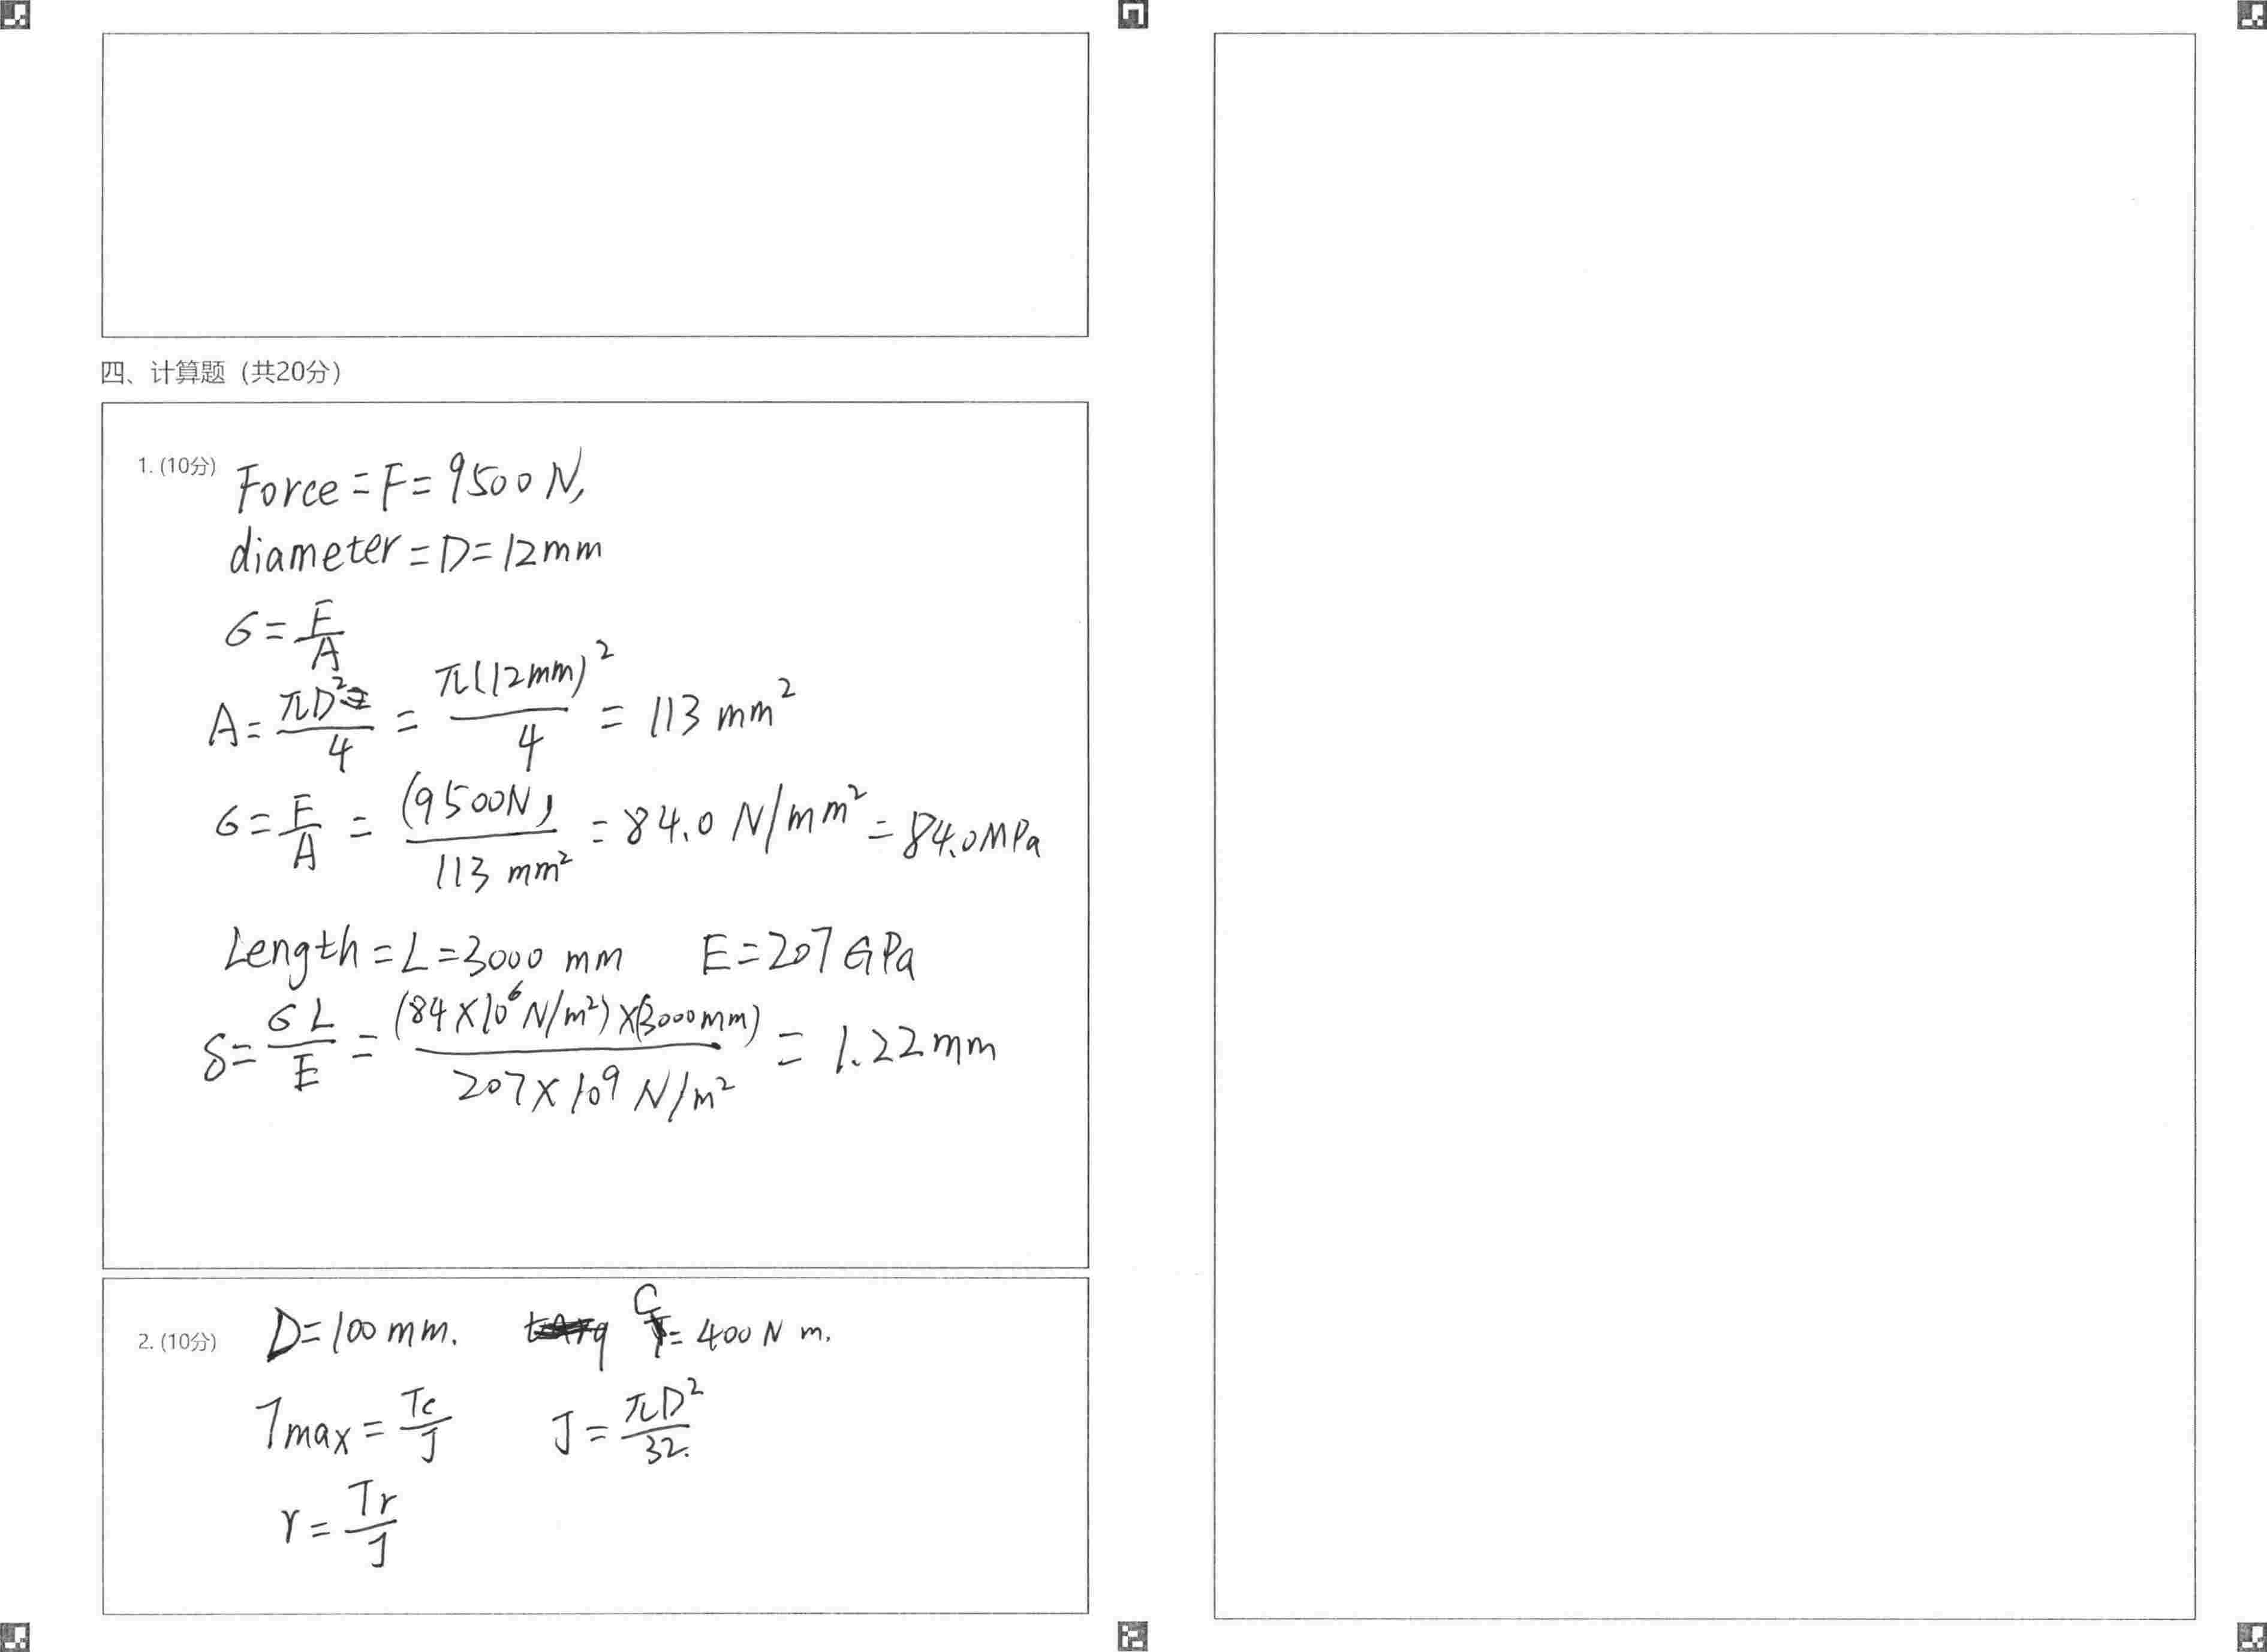 四、计算题（共20分）
1. (10分) Force = F = 9500 N,
diameter = D = 12mm
6 = F/A
A = πD²/4 = π(12mm)²/4 = 113 mm²
6 = F/A = (9500N)/113 mm² = 84.0 N/mm² = 84.0MPa
Length = L = 3000 mm E = 207 GPa
δ = 6L/E = (84×10⁶ N/m²)×(3000mm)/207×10⁹ N/m² = 1.22mm
2. (10分) D = 100 mm. = 400 N m.
Tmax = Tc/J J = πD²/32.
r = Tr/J